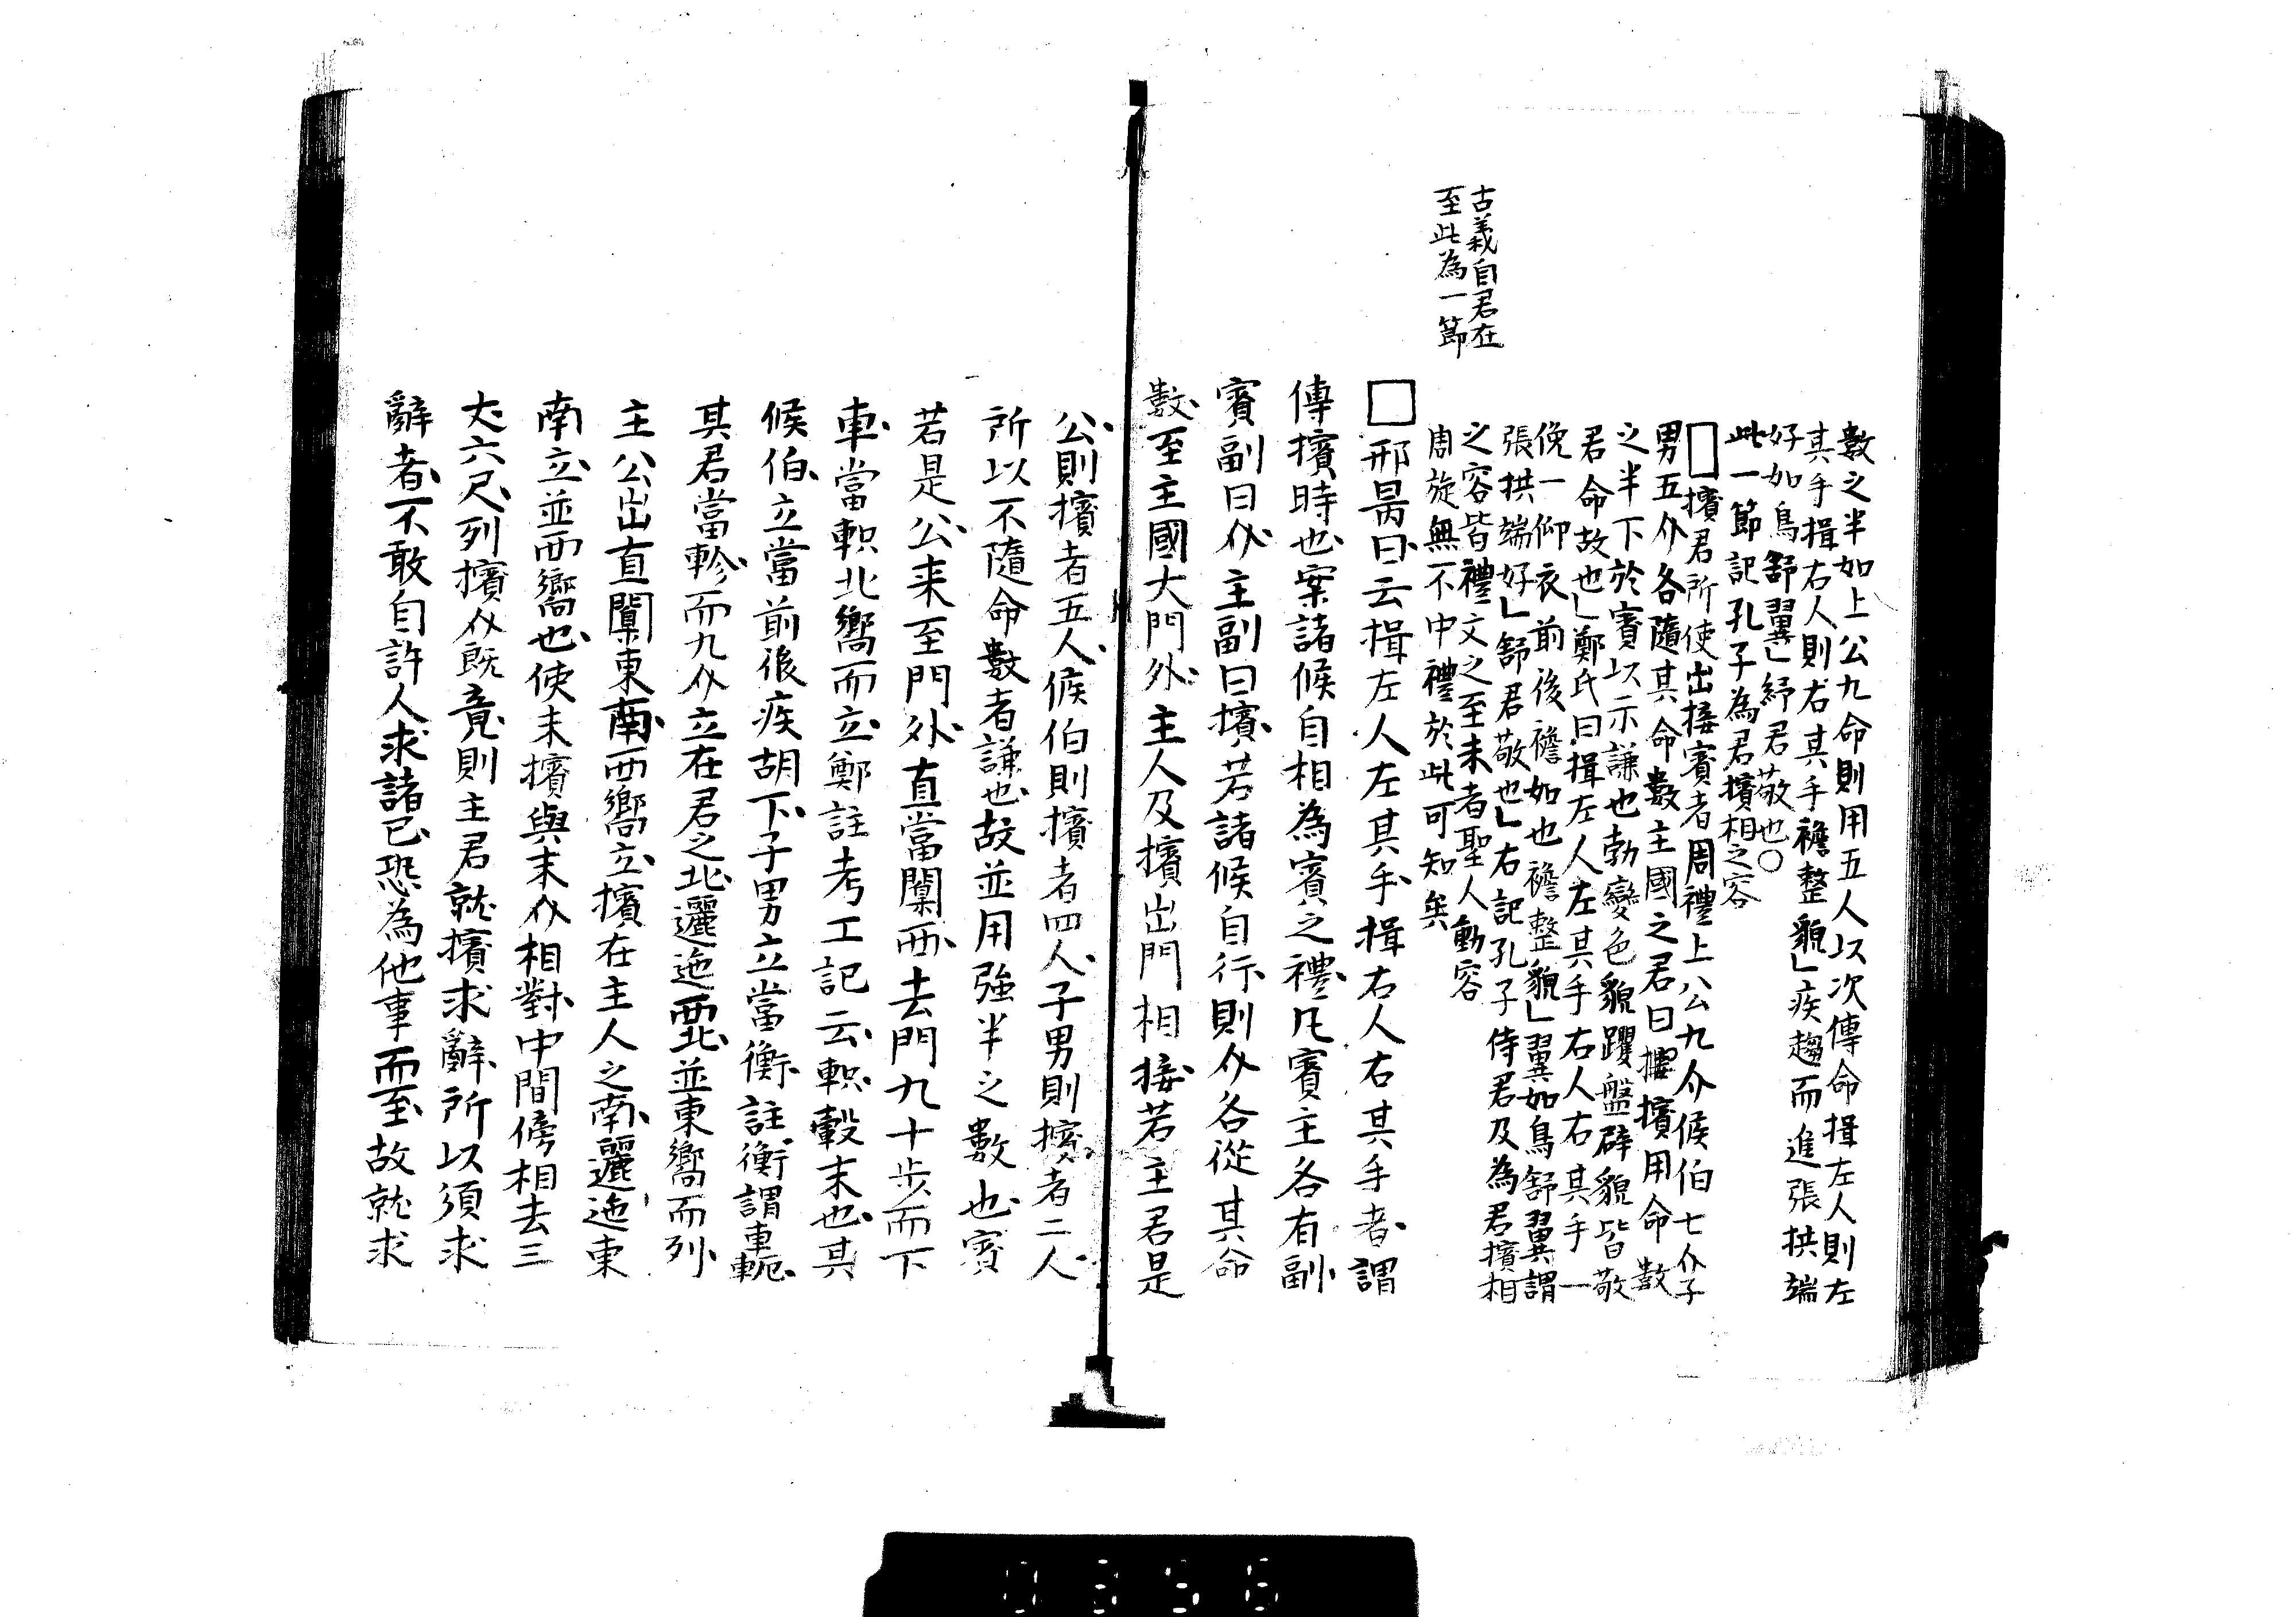 數之半如上公九命則用五人以次傳命揖左人則左
其手揖右人則右其手襜整貌」疾趨而進張拱端
好如鳥舒翼」紓君敬也○
此一節記孔子為君擯相之容
□擯君所使出接賓者周禮上公九介候伯七介子
男五介各隨其命數主國之君曰擯擯用命數
之半下於賓以示謙也勃變色貌躩盤辟貌皆敬
君命故也」鄭氏曰揖左人左其手右人右其手一
俛一仰衣前後襜如也襜整貌」翼如鳥舒翼謂
張拱端好」舒君敬也」右記孔子侍君及為君擯相
之容皆禮文之至末者聖人動容
周旋無不中禮於此可知矣
古義自君在
至此為一節
□邢昺曰云揖左人左其手揖右人右其手者謂
傳擯時也案諸候自相為賓之禮凡賓主各有副
賓副曰介主副曰擯若諸候自行則介各從其命
數至主國大門外主人及擯出門相接若主君是
公則擯者五人候伯則擯者四人子男則擯者二人
所以不隨命數者謙也故並用強半之數也賓
若是公来至門外直當闑西去門九十步而下
車當軹北嚮而立鄭註考工記云軹轂末也其
候伯立當前後疾胡下子男立當衡註衡謂車軛
其君當軫而九介立在君之北邐迤西北並東嚮而列
主公出直闑東南西嚮立擯在主人之南邐迤東
南立並西嚮也使末擯與末介相對中間傍相去三
丈六尺列擯介既竟則主君就擯求辭所以須求
辭者不敢自許人求諸已恐為他事而至故就求